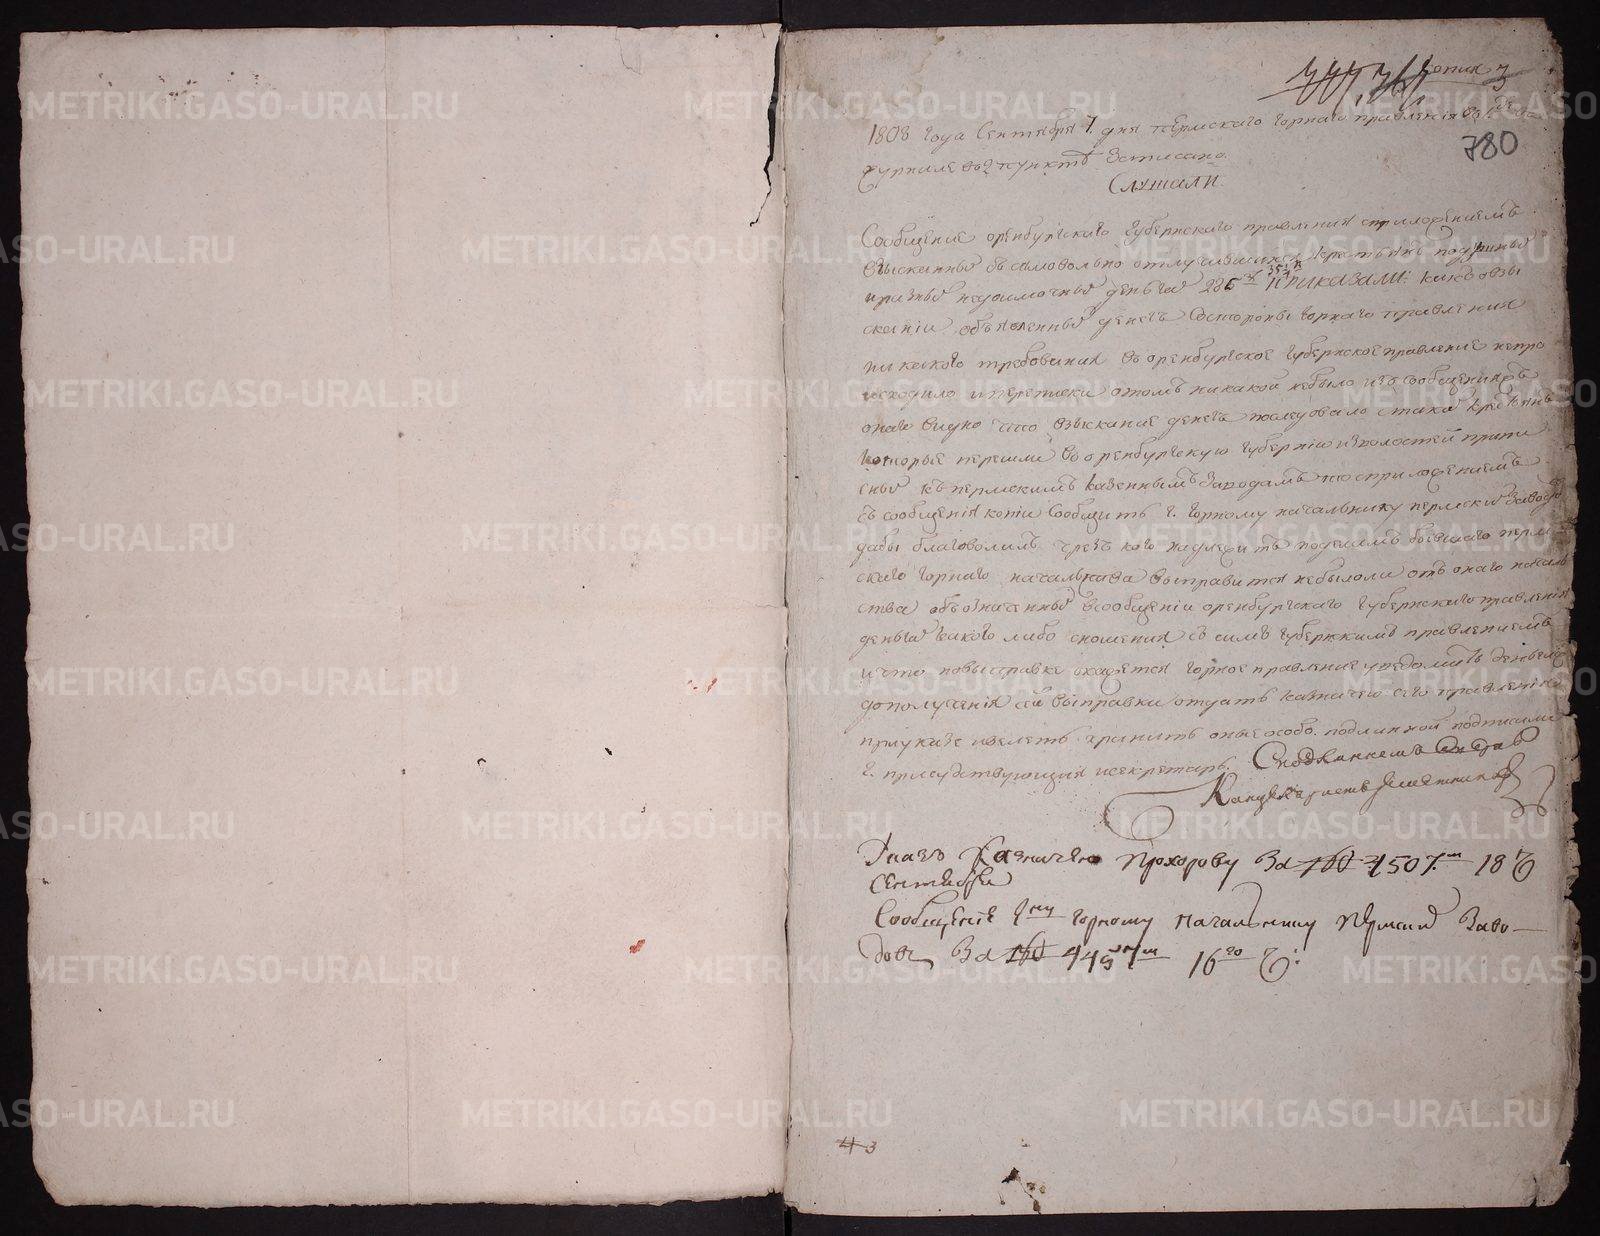 Копия 3
780
1808 года Сентября 7 дня пермскаго горнаго правления въ
журнале въ 2 пункте Записано.
Слушали
Сообщение оренбургскаго губернскаго правления с приложениемъ
взысканныхъ съ самовольно отлучившихся крестьянъ подушныхъ
и разныхъ недоимочныхъ денегъ 285 ПРИКАЗАЛИ: какъ о взы
скании объявленныхъ денегъ Состороны горнаго правления
никакого требования въ оренбургское губернское правление непро
исходило и переписки отомъ никакой небыло изъ сообщения жъ
онаго видно что взыскание денегъ последовало с такихъ крестьянъ
которые перешли въ оренбургскую губернию изволостей припи
сныхъ къ пермскимъ казеннымъ Заводамъ то с приложениемъ
съ сообщения копии Сообщить г. горному начальнику пермскихъ Заводовъ
дабы благоволилъ чрезъ кого надлежитъ поделамъ бывшаго перм
скаго горнаго начальства выправится небылоли отъ онаго началь
ства объозначенныхъ всообщении оренбургскаго губернскаго правления
деньгахъ какого либо сношения съ симъ губернскимъ правлениемъ
и что повыправке окажется горное правление уведомить деньгиже
дополучения сей выправки отдать казначею сего правления
приуказе ивелеть хранить оные особо. подлинной подписали
г. присудствующия исекретарь.
Канцеляристъ
Указъ Казначею Прохорову За 1507 18
Сентября
Сообщение Гну горному начальнику Пермских Заво-
довъ За 4457 16го
3